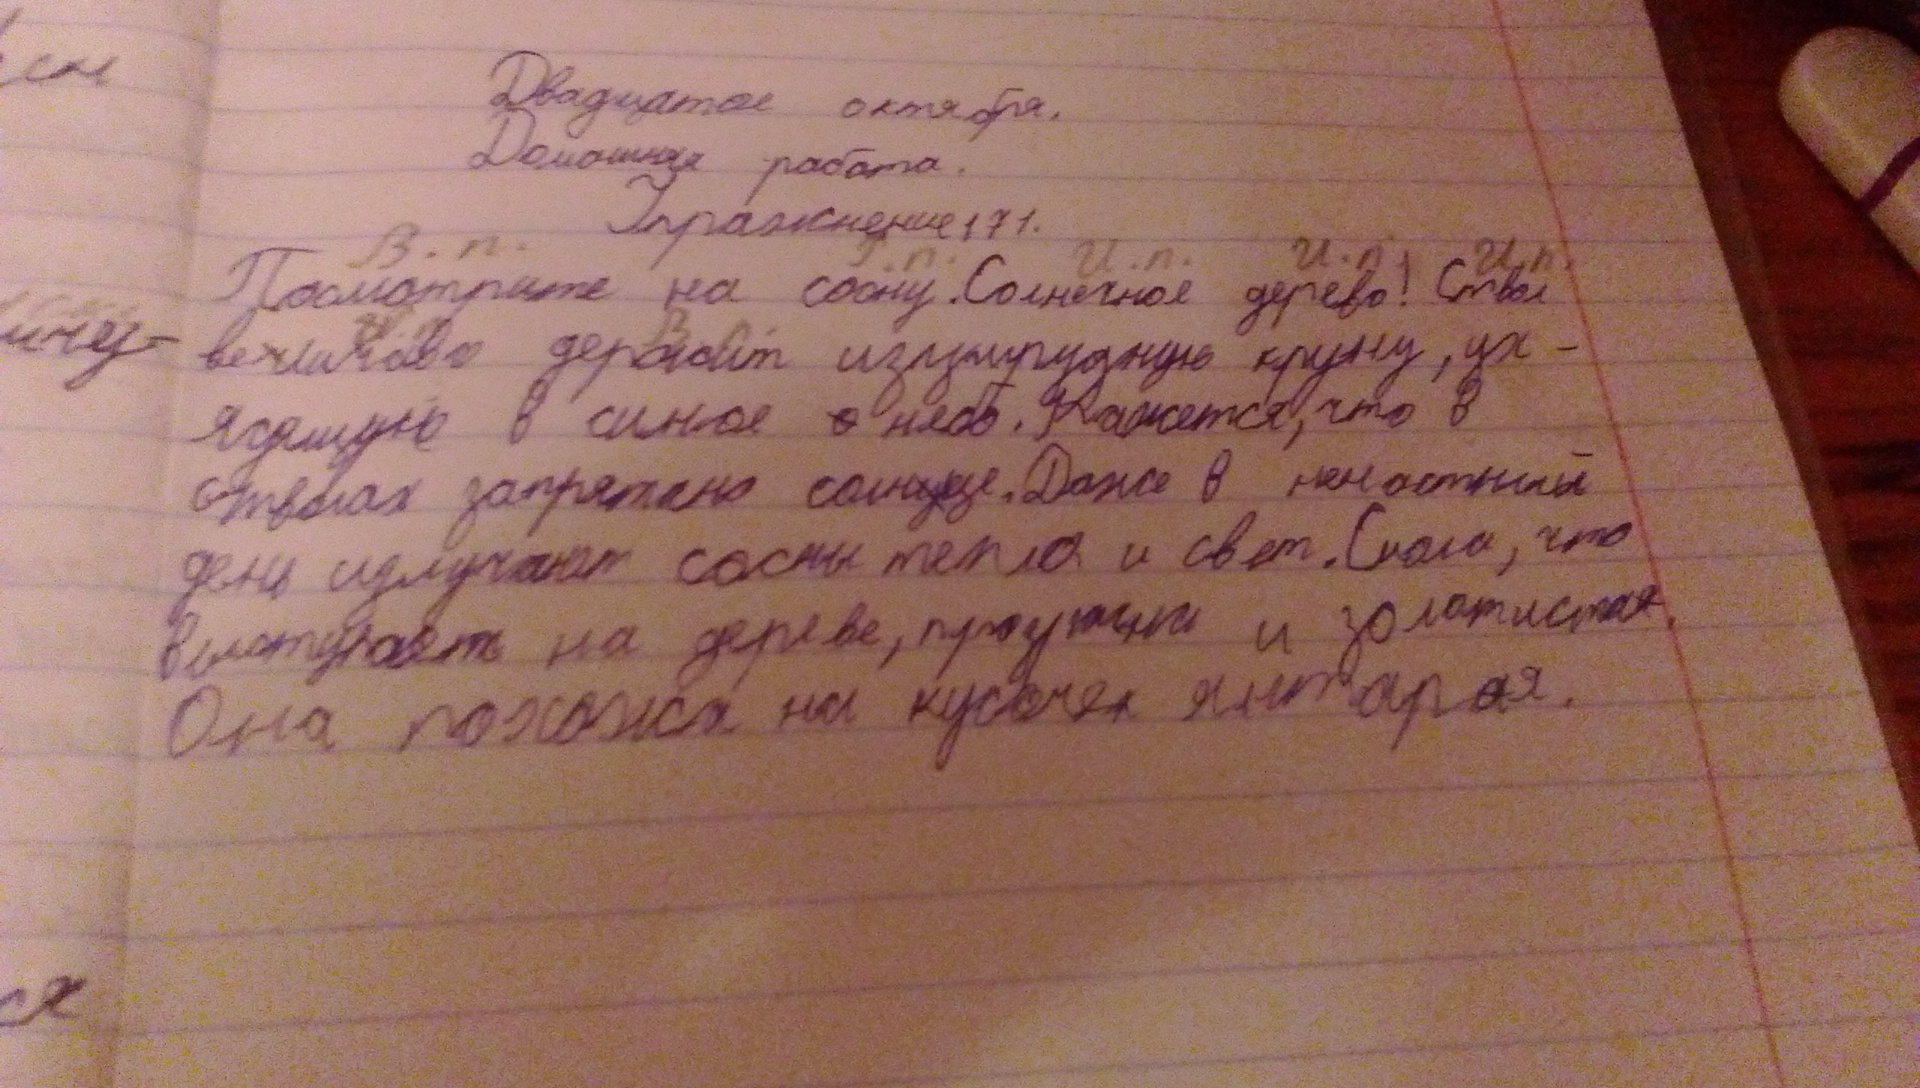 Двадцатое октября.
Домашняя работа.
Упражнение 171.
В.п. Т.п. И.п. И.п. И.п.
Посмотрите на сосну. Солнечное дерево! Ствол
В.п.
величаво держит изумрудную крону, ух-
ядящую в синее небо. Кажется, что в
стволах запрятано солнце. Даже в ненастный
день излучают сосны тепло и свет. Смола, что
выступает на дереве, прозрачна и золотистая.
Она похожа на кусочек янтаря.